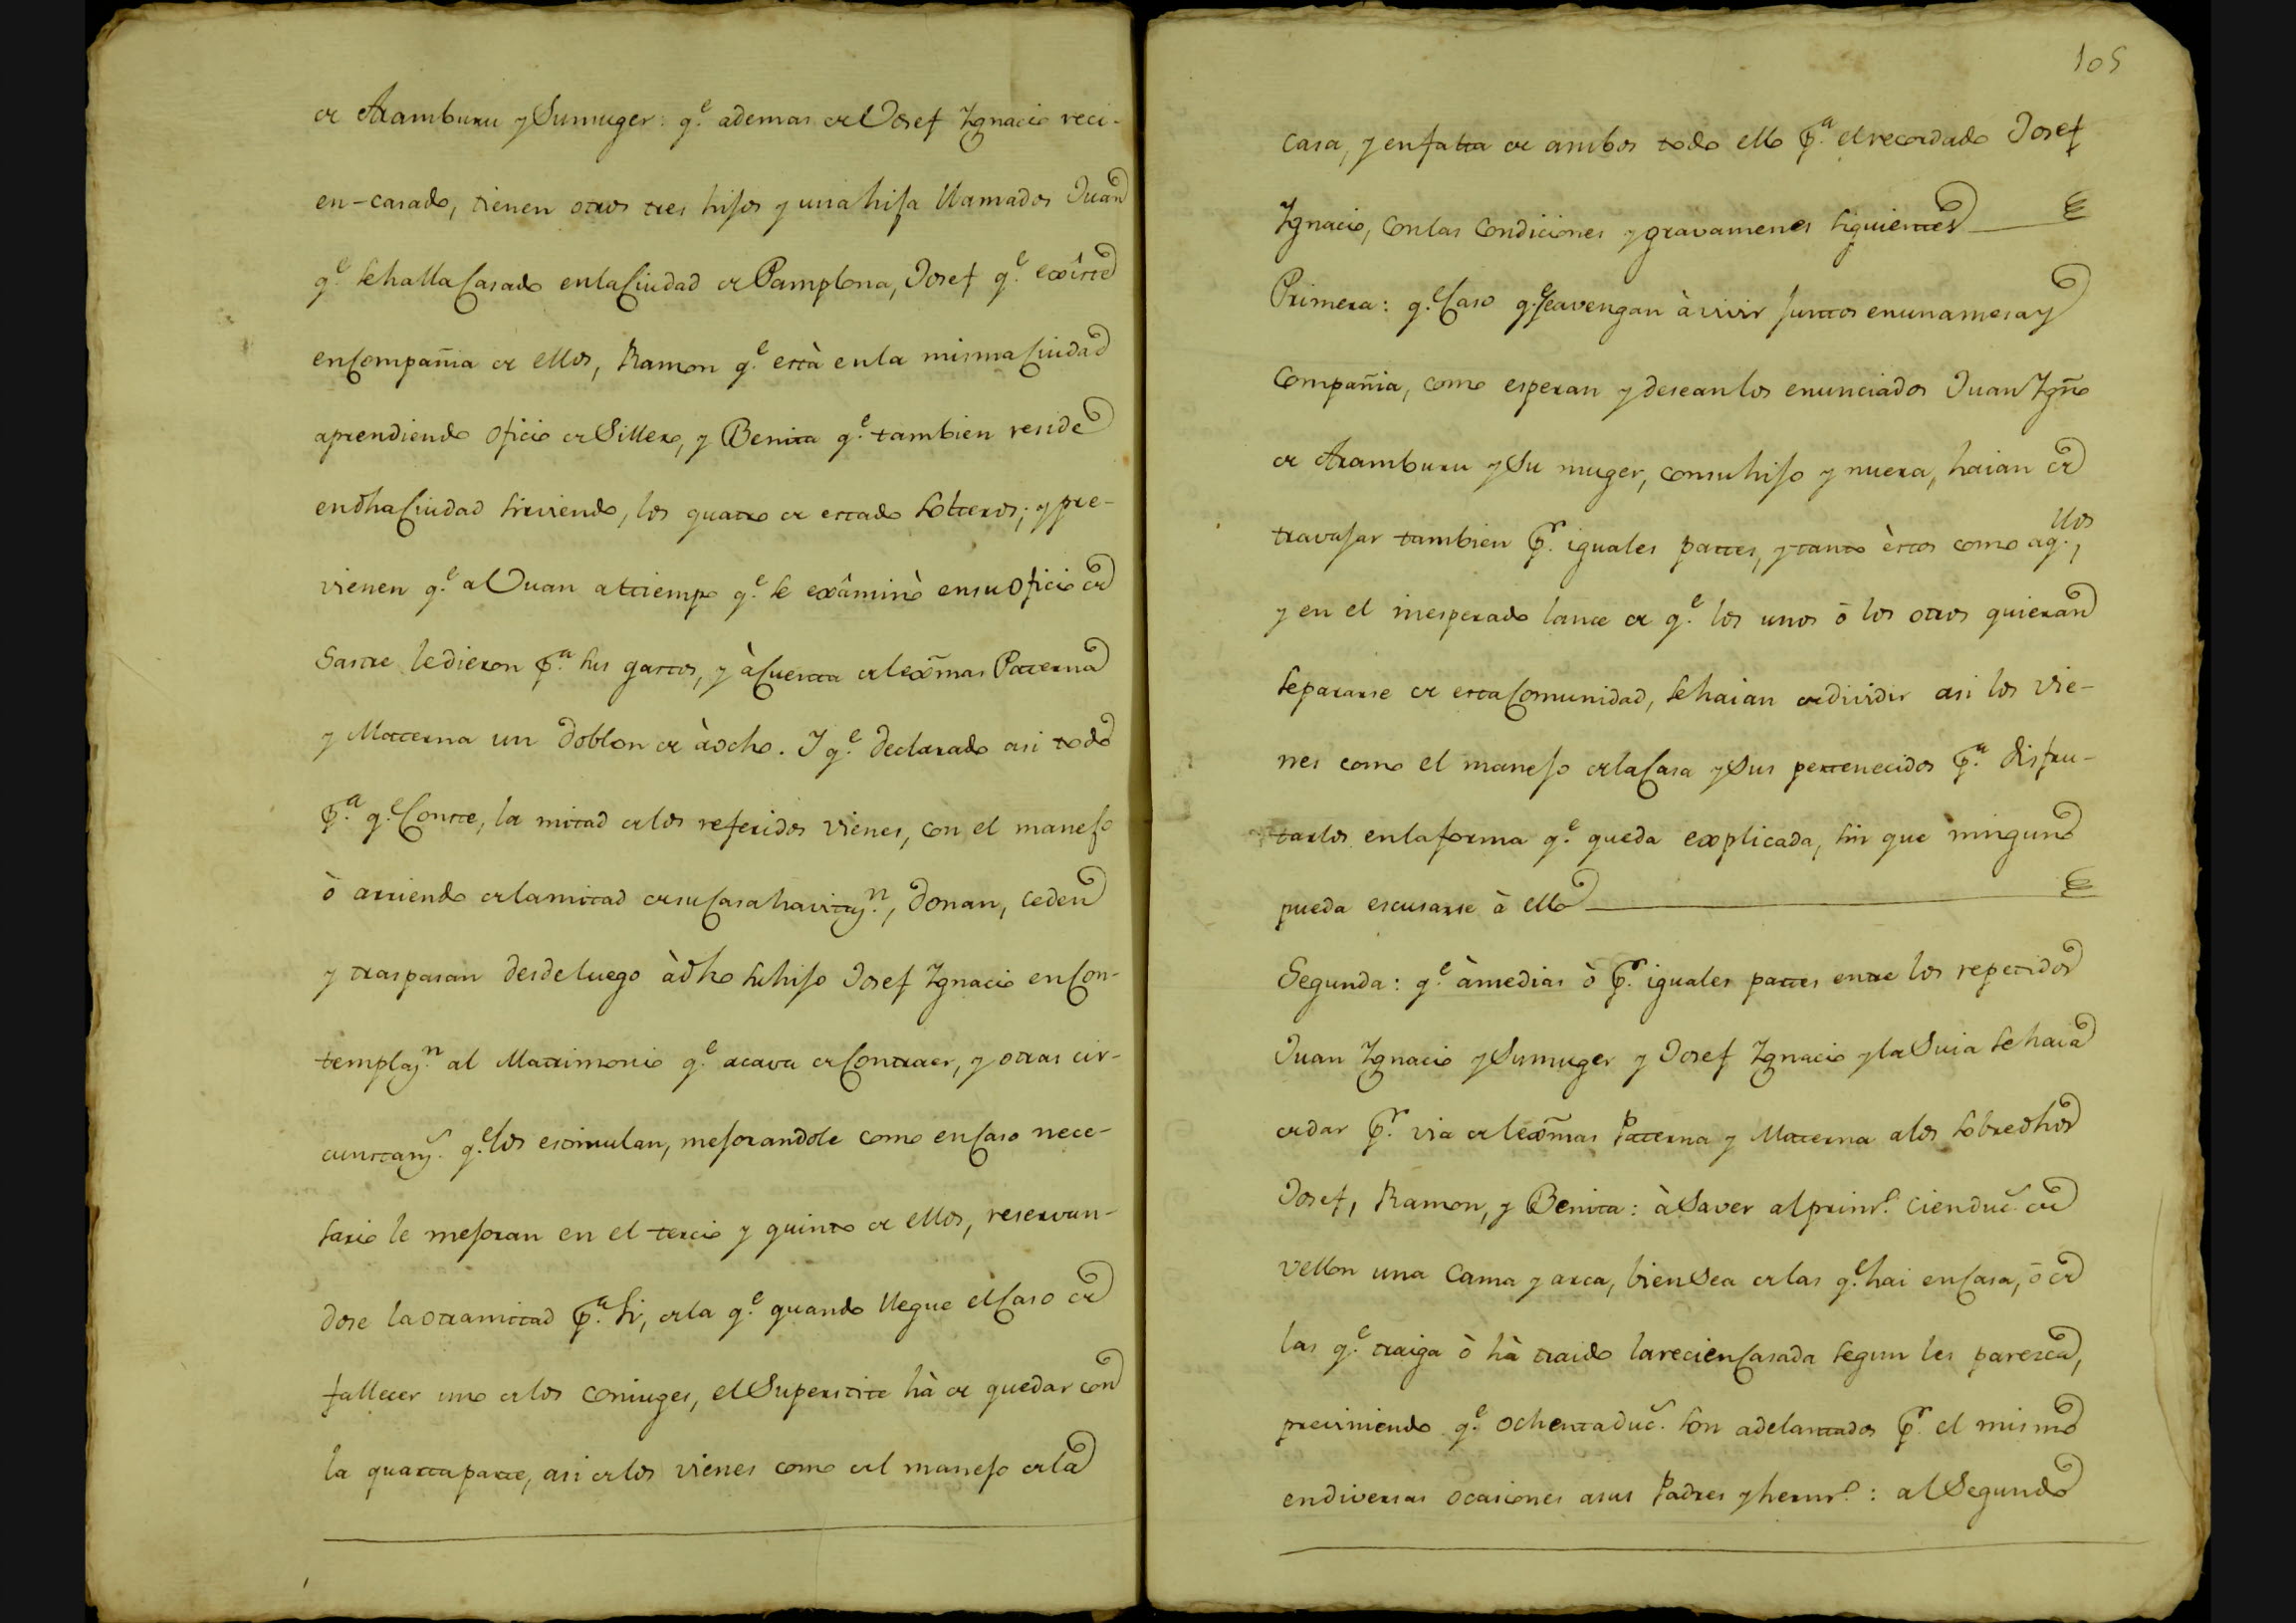 de Aramburu y Sumuger: q.e ademas de Josef Ygnacio reci-
en-casado, tienen otros tres hijos y una hija llamados Juan
q.e se halla Casado en la Ciudad de Pamplona, Josef q.e exîste
en Compañia de ellos, Ramon q.e està en la misma Ciudad
aprendiendo oficio de Sillero, y Benita q.e tambien reside
en dha Ciudad sirviendo, los quatro de estado solteros; y pre-
vienen q.e a Juan al tiempo q.e se exâminò en su Oficio de
Sastre le dieron p.a sus gastos, y à Cuenta de lexmas Paterna
y Materna un doblon de àocho. Y q.e declarado asi todo
p.a q.e Conste, la mitad de los referidos vienes, con el manejo
ò arriendo de la mitad de su Casa havitaz.n, donan, ceden
y traspasan desde luego à dho su hijo Josef Ygnacio en Con-
templaz.n al Matrimonio q.e acava de Contraer, y otras cir-
cunstanz.s q.e los estimulan, mejorandole como en Caso nece-
sario le mejoran en el tercio y quinto de ellos, reservan-
dose la otra mitad p.a si, de la q.e quando llegue el Caso de
fallecer uno de los coniuges, el Superstite hà de quedar con
la quarta parte, asi de los vienes como del manejo de la
105
casa, y en falta de ambos todo ello p.a el recordado Josef
Ygnacio, con las Condiciones y gravamenes siguientes
Primera: q.e Caso q.e se avengan à vivir juntos en una mesa y
Compañia, como esperan y desean los enunciados Juan Ygno
de Aramburu y Su muger, con su hijo y nuera, haian de
travajar tambien p.r iguales partes, y tanto èstos como aq.llos,
y en el inesperado lance de q.e los unos ò los otros quieran
separarse de esta Comunidad, se haian de dividir asi los vie-
nes como el manejo de la Casa y Sus pertenecidos p.a disfru-
tarlos en la forma q.e queda explicada, sin que ninguno
pueda escusarse à ello
Segunda: q.e àmedias ò p.r iguales partes entre los repetidos
Juan Ygnacio y Sumuger y Josef Ygnacio y la Suia se haia
de dar p.r via de lexmas Paterna y Materna a los sobredhos
Josef, Ramon, y Benita: à Saver al prim.o cien duc.s de
vellon una Cama y arca, bien Sea de las q.e hai en Casa, ò de
las q.e traiga ò hà traido la recien Casada segun les paresca,
previniendo q.e ochenta duc.s son adelantados p.r el mismo
en diversas ocasiones a sus Padres y herm.s: al Segundo